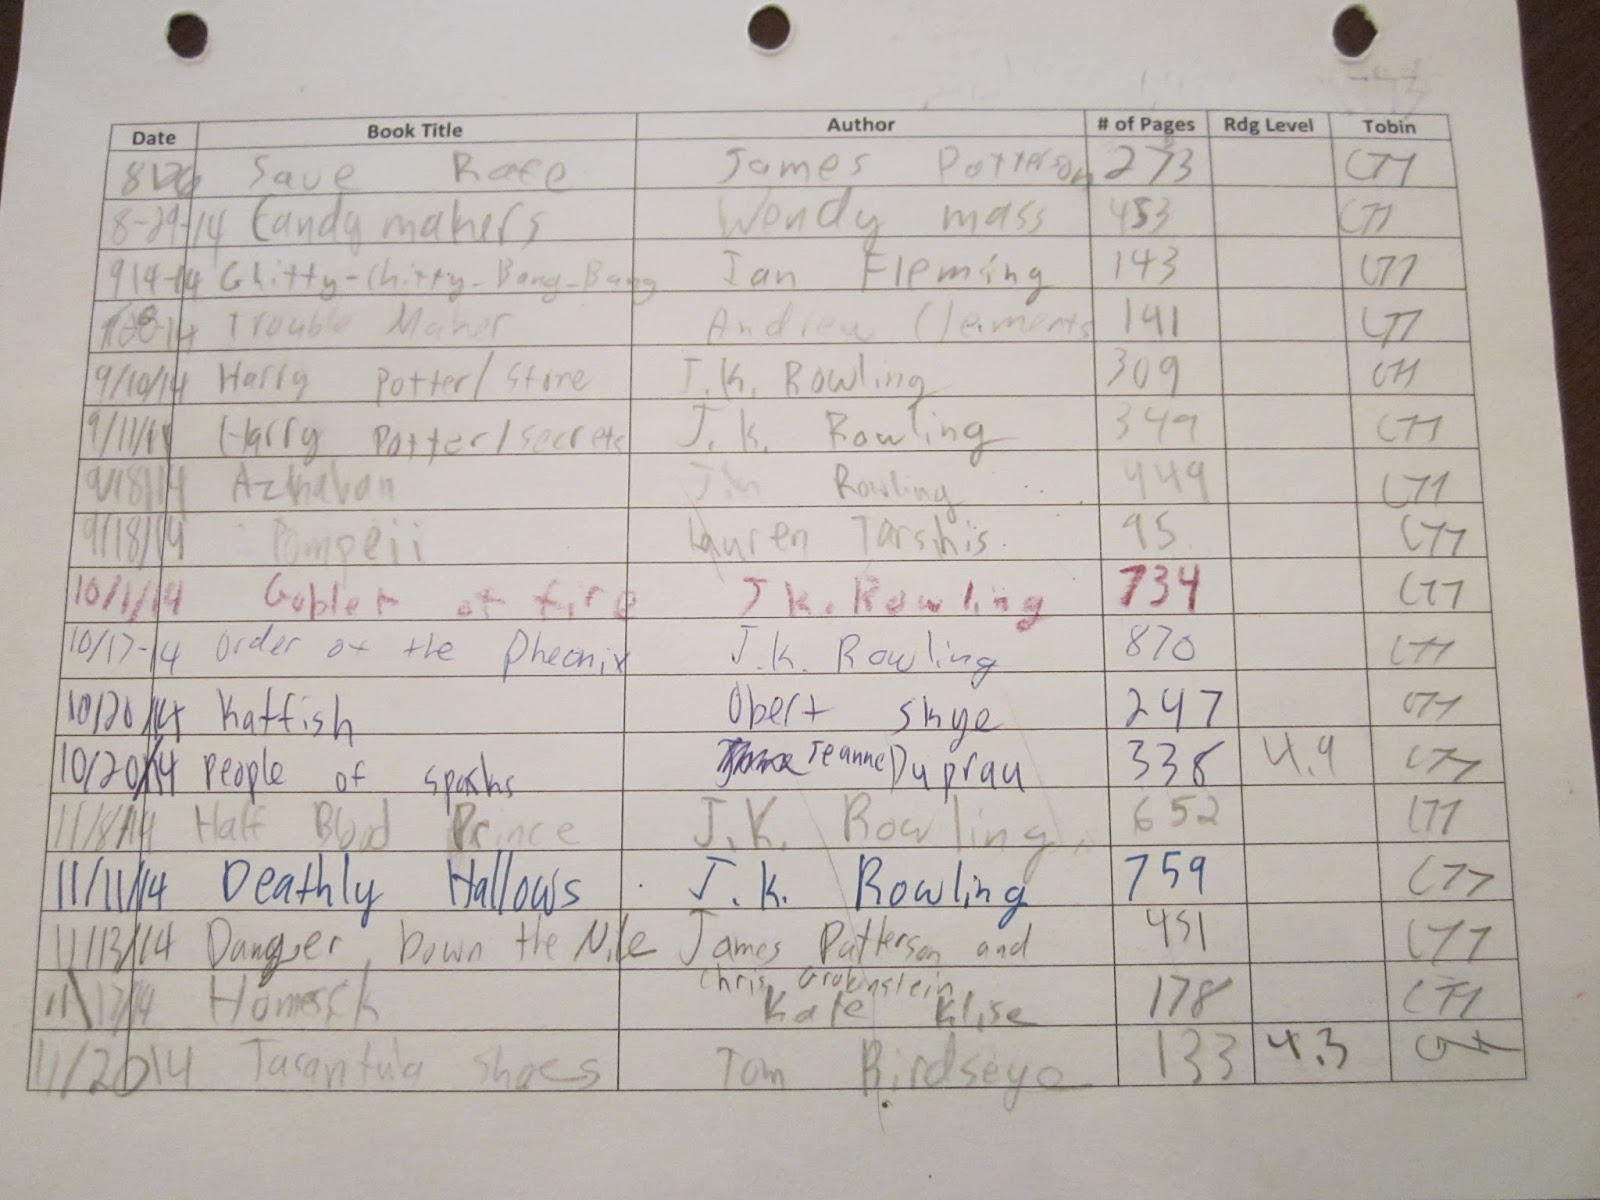 Date Book Title Author # of Pages Rdg Level Tobin
Save Rafe James Patterson 273
8-29-14 Candy makers Wendy mass 453
9/4-14 Chitty-Chitty-Bang-Bang Ian Fleming 143
Trouble Maker Andrew Clements 141
9/10/14 Harry Potter/Stone J.K. Rowling 309
9/11/14 Harry Potter/Secrets J.K. Rowling 349
9/18/14 Azkaban Rowling 449
9/18/14 Pompeii Lauren Tarshis 95
10/1/14 Goblet of fire J.K. Rowling 734
10/17-14 Order of the Pheonix J.K. Rowling 870
10/20/14 Katfish Obert Skye 247
10/20/14 People of sparks Jeanne Duprau 338 4.9
11/8/14 Half Blood Prince J.K. Rowling 652
11/11/14 Deathly Hallows J.K. Rowling 759
11/13/14 Danger Down the Nile James Patterson and 451
Chris Grabenstein
Kate Klise 178
11/20/14 Tarantula Shoes Tom Birdseye 133 4.3